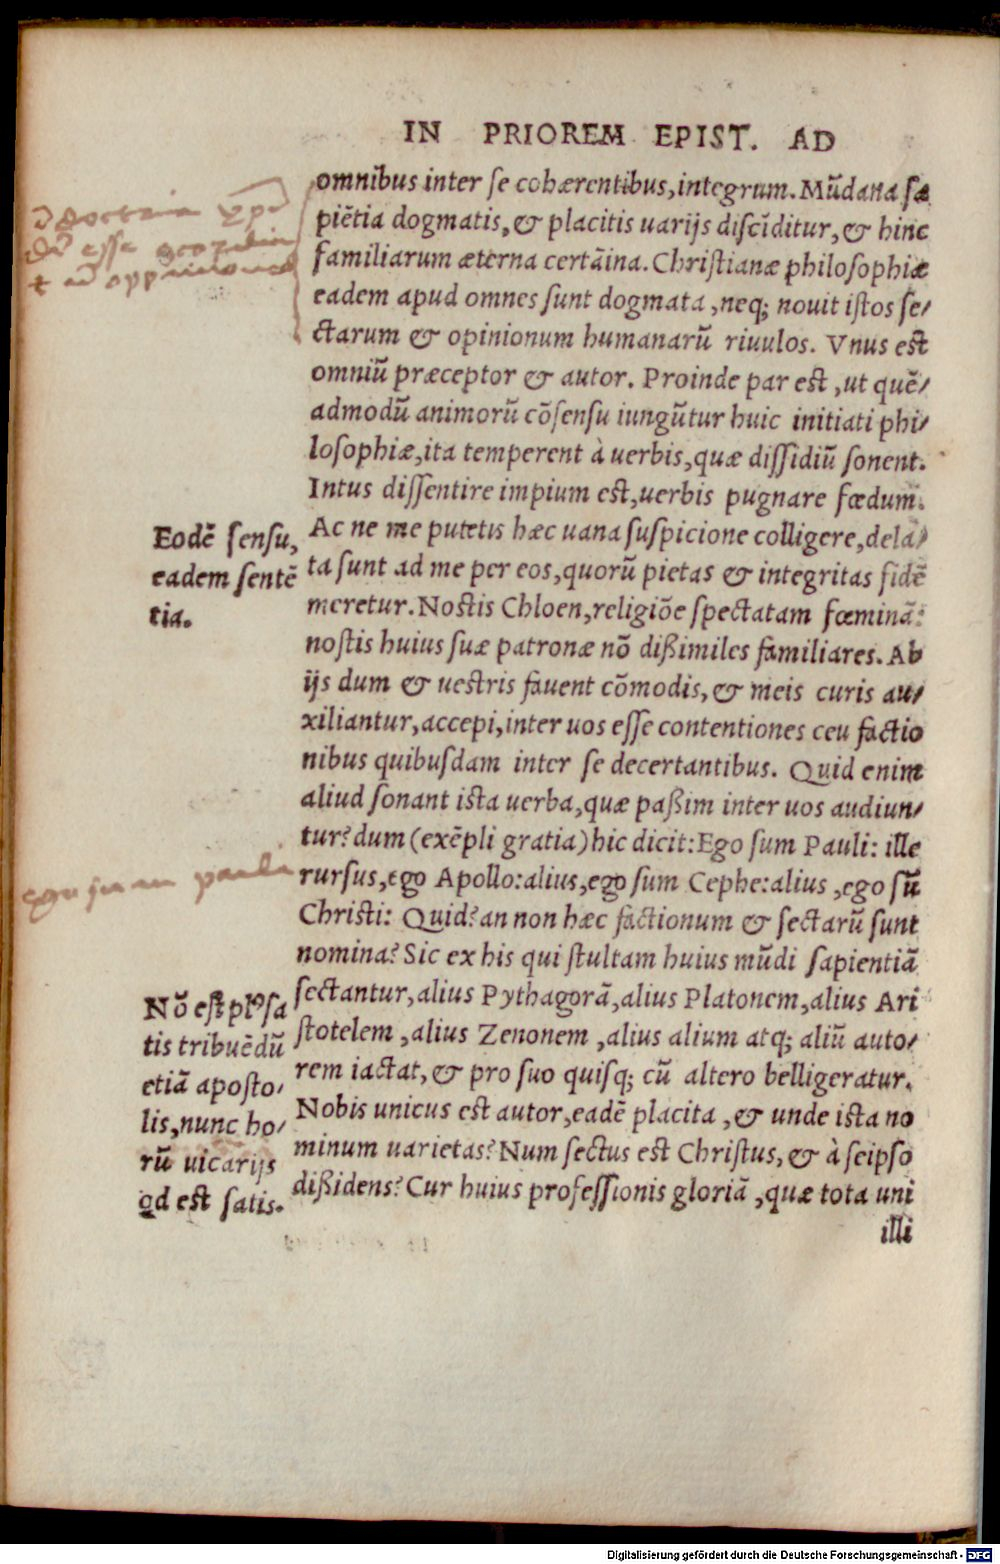 IN PRIOREM EPIST. AD
omnibus inter se cohærentibus, integrum. Mūdana sa
piētia dogmatis, & placitis uarijs discīditur, & hinc
familiarum æterna certāina. Christianæ philosophiæ
eadem apud omnes sunt dogmata, neq; nouit istos se/
ctarum & opinionum humanarū riuulos. Vnus est
omniū præceptor & autor. Proinde par est, ut quē/
admodū animorū cōsensu iungūtur huic initiati phi/
losophiæ, ita temperent à uerbis, quæ dissidiū sonent.
Intus dissentire impium est, uerbis pugnare fœdum.
Ac ne me putetis hæc uana suspicione colligere, dela/
ta sunt ad me per eos, quorū pietas & integritas fidē
meretur. Nostis Chloen, religiōe spectatam fœminā:
nostis huius suæ patronæ nō dißimiles familiares. Ab
ijs dum & uestris fauent cōmodis, & meis curis au/
xiliantur, accepi, inter uos esse contentiones ceu factio
nibus quibusdam inter se decertantibus. Quid enim
aliud sonant ista uerba, quæ paßim inter uos audiun/
tur? dum (exēpli gratia) hic dicit: Ego sum Pauli: ille
rursus, ego Apollo: alius, ego sum Cephe: alius, ego sū
Christi: Quid? an non hæc factionum & sectarū sunt
nomina? Sic ex his qui stultam huius mūdi sapientiā
sectantur, alius Pythagorā, alius Platonem, alius Ari
stotelem, alius Zenonem, alius alium atq; aliū auto/
rem iactat, & pro suo quisq; cū altero belligeratur.
Nobis unicus est autor, eadē placita, & unde ista no
minum uarietas? Num sectus est Christus, & à seipso
dißidens? Cur huius professionis gloriā, quæ tota uni
illi
Eodē sensu,
eadem sentē
tia.
ego sum pauli
Nō est plꝰ sa
tis tribuēdū
etiā aposto/
lis, nunc ho/
rū uicarijs
qd est satis.
Digitalisierung gefördert durch die Deutsche Forschungsgemeinschaft - DFG